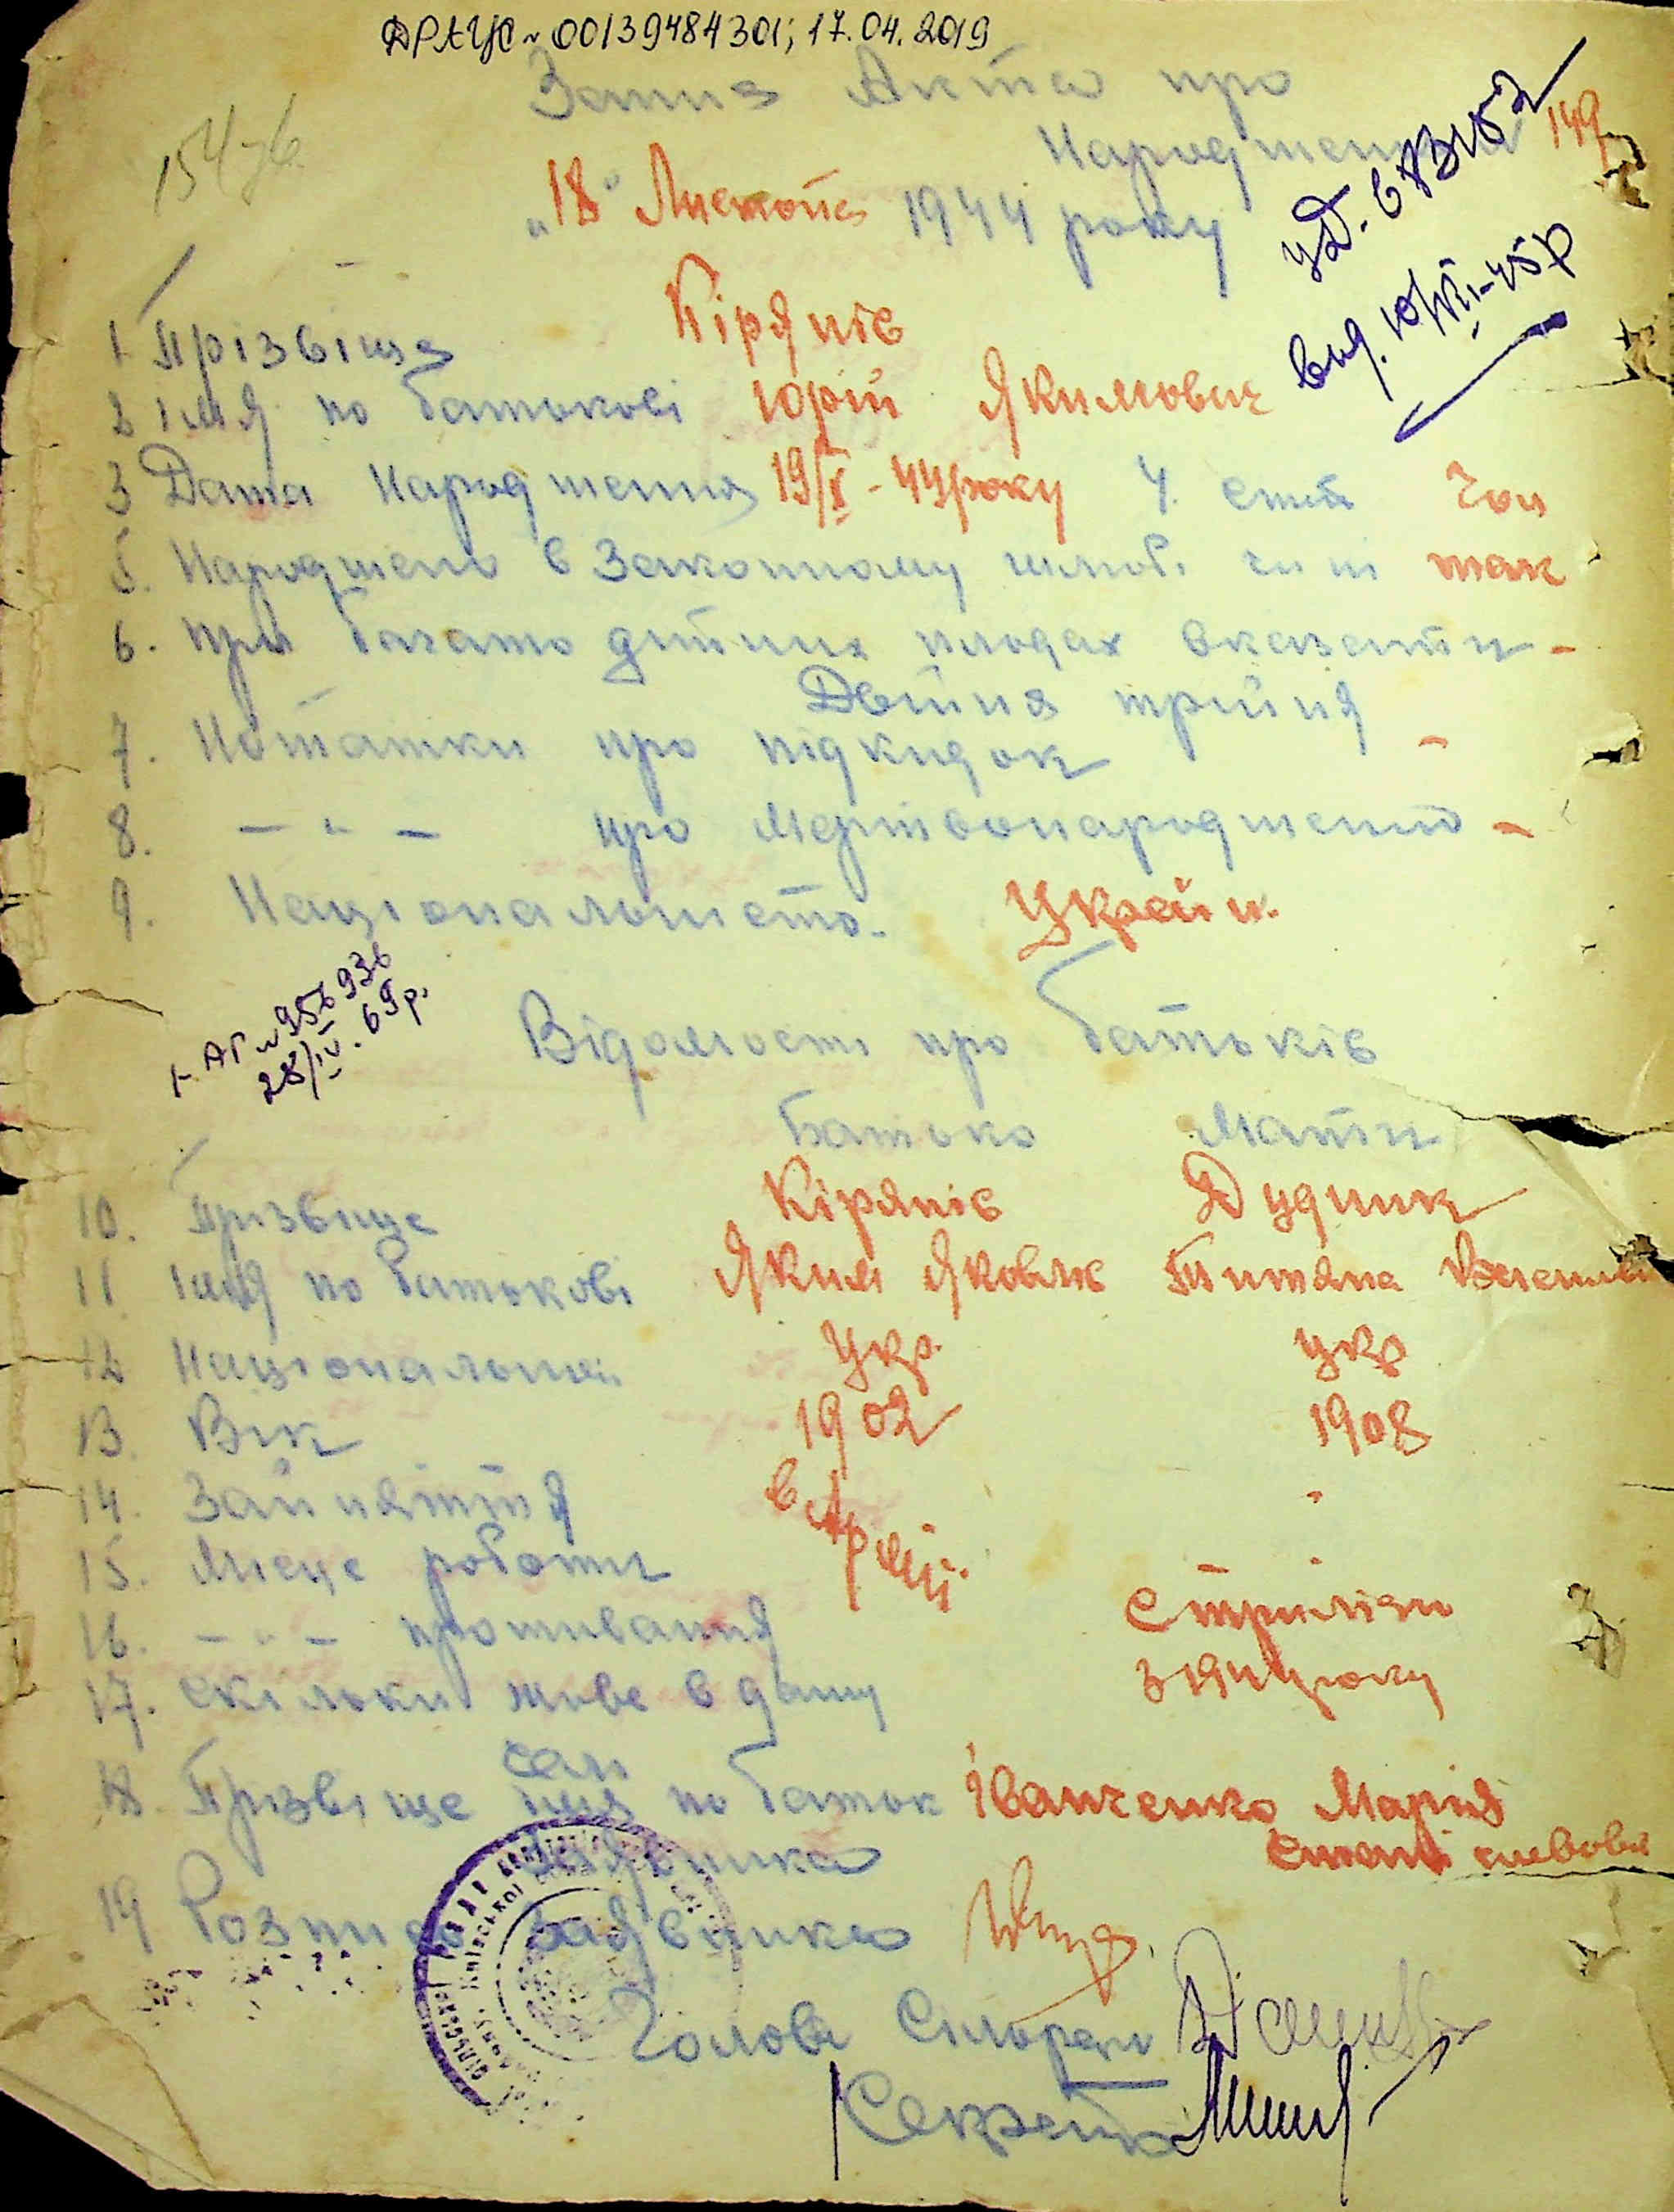 ДРАЦС № 00139484301; 17.04.2019
Запис Акта про
Народження 149
154 зв.
"18" Листопа 1944 року
вид. 10/VI-45р
1 Прізвище Кіряпів
2 імя по батькові Юрій Якимович
3 Дата Народження 19/X-44року 4. стать Чол
5. Народжено в Законному шлюбі чи ні так
6. при багато дітних плодах вказати -
Двійня трійня
7. Нотатки про підкидок -
8. — " — про Мертвонародженню -
9. Національність. Україн.
1-АГ № 956936
28/IV.69р.
Відомості про батьків
Батько Мати
10. Прізвище Кіряпів Дудник
11 імя по батькові Яким Яковлє Титяна
12 Національні Укр. укр
13. Вік 1902 1908
14. Зайняття в Армії. -
15. Місце роботи -
16. — " — проживання
17. скільки живе в дану з 1944року
18 Прізвище імя по баток Іванченко Марія
заявника
19 Розпис Заявника
Голова Сільради
Секрета